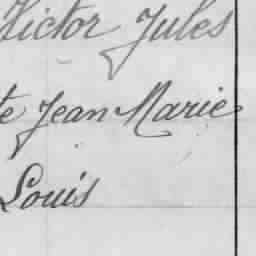 Victor Jules
te Jean Marie
Louis